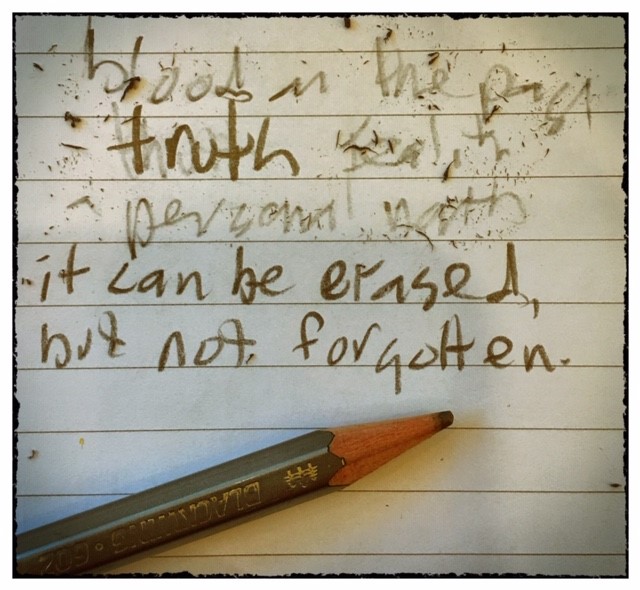 blood in the past
truth
personal
it can be erased,
but not forgotten.
BLACKWING 602